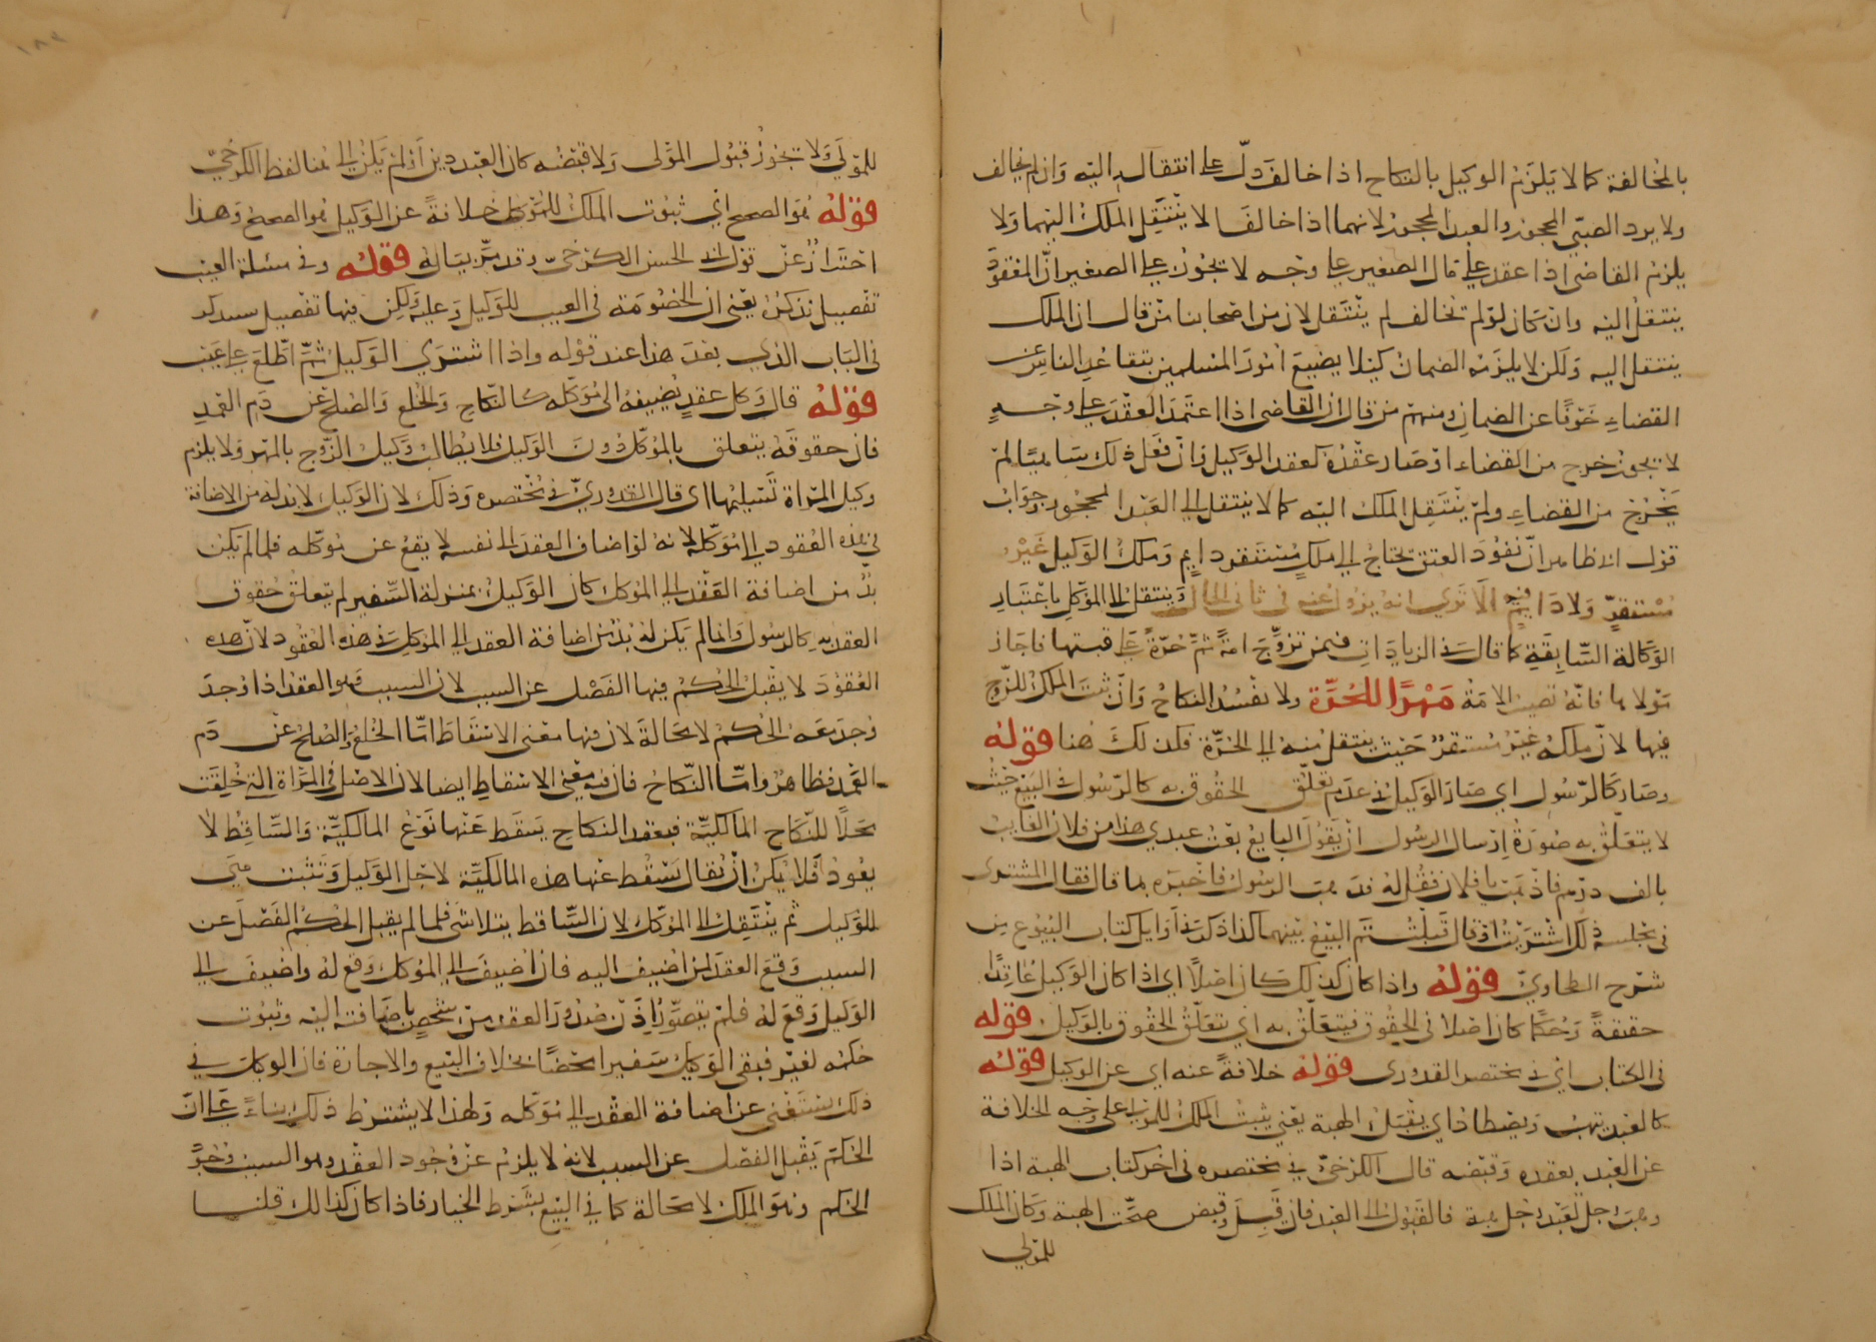 بالمخالفة كما لا يلزم الوكيل بالنكاح اذا خالف دلّ على انتقاله اليه وان لم يخالف
ولا يرد الصبي المحجور والعبد المحجور لانهما اذا خالفا لا ينتقل الملك اليهما ولا
يلزم القاضى اذا عقد على مال الصغير على وجه لا يجوز على الصغير انّ المعقود
ينتقل اليه وان كان لو لم تخالف لم ينتقل لان من اصحابنا من قال ان الملك
ينتقل اليه ولكن لا يلزمه الضمان كيلا يضيع امور المسلمين بتقاعد الناس عن
القضاء خوفًا عن الضمان ومنهم من قال ان القاضى اذا اعتمد العقد على وجه
لا يجوز خرج من القضاء اذ صار عقده كعقد الوكيل وان فعل ذلك ساهيًا لم
يخرج من القضاء ولم ينتقل الملك اليه كما لا ينتقل الى العبد المحجور وجواب
قول ابى طاهر انّ نفوذ العتق يحتاج الى ملك مستقر دايم وملك الوكيل غير
مستقرّ ولا دايم الا ترى انه يزول عنه فى ثانى الحال وينتقل الى الموكل باعتبار
الوكالة السّابقة كما قال فى الزيادات فيمن تزوّج امةً ثم حُرّةً على رقبتها فاجاز
مولاها فانّه تصير الامة مَهْرًا للحُرّة ولا يفسد النكاح وان ثبت الملك للزوج
فيها لان ملكه غير مستقر حيث ينتقل منه الى الحرّة فكذلك هنا قوله
وصار كالرّسول اى صار الوكيل فى عدم تعلق الحقوق به كالرّسول فى البيع حيث
لا يتعلق به صورة ارسال الرسول ان يقول البايع بعت عبدي هذا من فلان الغايب
بالف درهم فاذهب يا فلان فقل له فذهب الرسول فاخبره بما قال فقال المشترى
فى مجلسه ذلك اشتريت او قال قبلت تم البيع بينهما كذا ذكر فى اوايل كتاب البيوع من
شرح الطحاوىّ قوله واذا كان كذلك كان اصلًا اى اذا كان الوكيل عاقدًا
حقيقةً وحكمًا كان اصلا فى الحقوق فيتعلق به اى يتعلق الحقوق بالوكيل قوله
فى الكتاب اى فى مختصر القدورى قوله خلافةً عنه اى عن الوكيل قوله
كالعبد يتهب ويصطاد اى يقبل الهبة يعنى يثبت الملك للمولى على وجه الخلافة
عن العبد بعقده وقبضه قال الكرخىّ فى مختصره فى اخر كتاب الهبة اذا
وهب رجل لعبد رجل هبة فالقبول الى العبد فان قبل وقبض صحّت الهبة وكان الملك
للمولى
للمولى ولا تجوز قبول المولى ولا قبضه كان العبد دين او لم يكن الى هنا لفظ الكرخىّ
قوله هو الصحيح اى ثبوت الملك للموكل خلافةً عن الوكيل هو الصحيح وهذا
احتراز عن قول ابى الحسن الكرخىّ وقد مرّ بيانه قوله وفى مسئلة العيب
تفصيل نذكره يعنى ان الخصومة فى العيب للوكيل وعليه ولكن فيها تفصيل سيذكر
فى الباب الذى بعد هذا عند قوله واذا اشترى الوكيل ثمّ اطّلع على عيب
قوله قال وكل عقد يضيفه الى موكله كالنكاح والخلع والصلح عن دم العمد
فان حقوقه يتعلق بالموكل دون الوكيل فلا يطالب وكيل الزّوج بالمهر ولا يلزم
وكيل المراة تسليمها اى قال القدورىّ فى مختصره وذلك لان الوكيل لا بد له من الاضافة
فى هذه العقود الى موكله لانه لو اضاف العقد الى نفسه لا يقع عن موكله فلما لم يكن
بدّ من اضافة العقد الى الموكل كان الوكيل بمنزلة السّفير لم يتعلق حقوق
العقد به كالرسول وانما لم يكن له بدّ من اضافة العقد الى الموكل فى هذه العقود لان هذه
العقود لا يقبل الحكم فيها الفصل عن السبب لان السبب وهو العقد اذا وجد
وجد معه الحكم لا محالة لان فيها معنى الاسقاط امّا الخلع والصلح عن دم
العمد فظاهر وامّا النّكاح فان فيه معنى الاسقاط ايضا لان الاصل فى المراة التى خلقت
محلّا للنّكاح المالكيّة فبعقد النكاح يسقط عنها نوع المالكيّة والسّاقط لا
يعود فلا يمكن ان يقال يسقط عنها هذه المالكيّة لاجل الوكيل وتثبت هى
للوكيل ثم ينتقل الى الموكل لان السّاقط يتلاشى فلما لم يقبل الحكم الفصل عن
السبب وقع العقد لمن اضيف اليه فان اضيف الى الموكل وقع له واضيف الى
الوكيل وقع له فلم يتصوّر اذن صدور العقد من شخص باضافته اليه وثبوت
حكمه لغيره فبقى الوكيل سفيرا محضًا بخلاف البيع والاجارة فان الوكيل فى
ذلك يستغنى عن اضافة العقد الى موكله ولهذا لا يشترط ذلك بناءً على انّ
الحكم يقبل الفصل عن السبب لانه لا يلزم عن وجود العقد وهو السبب وجود
الحكم وهو الملك لا محالة كما فى البيع بشرط الخيار فاذا كان كذلك قلنا